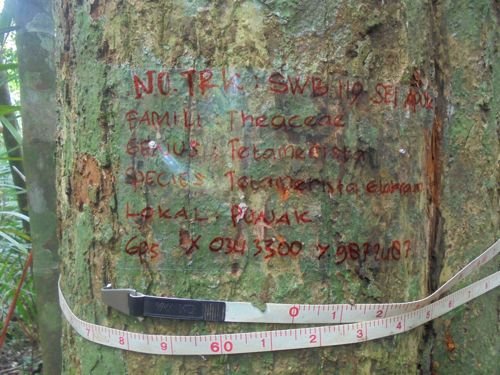 NO.TRK: SWB 119 SEI
FAMILI: Theaceae
GENIUS: Tetamerista
SPECIES: Tetamerista Glabra
LOKAL: PUNAK
GPS X 034 3300 Y 9877487
0 1 2 3 4 5 6 7 8
7 8 9 60 1 2 3 4 5 6 7 8